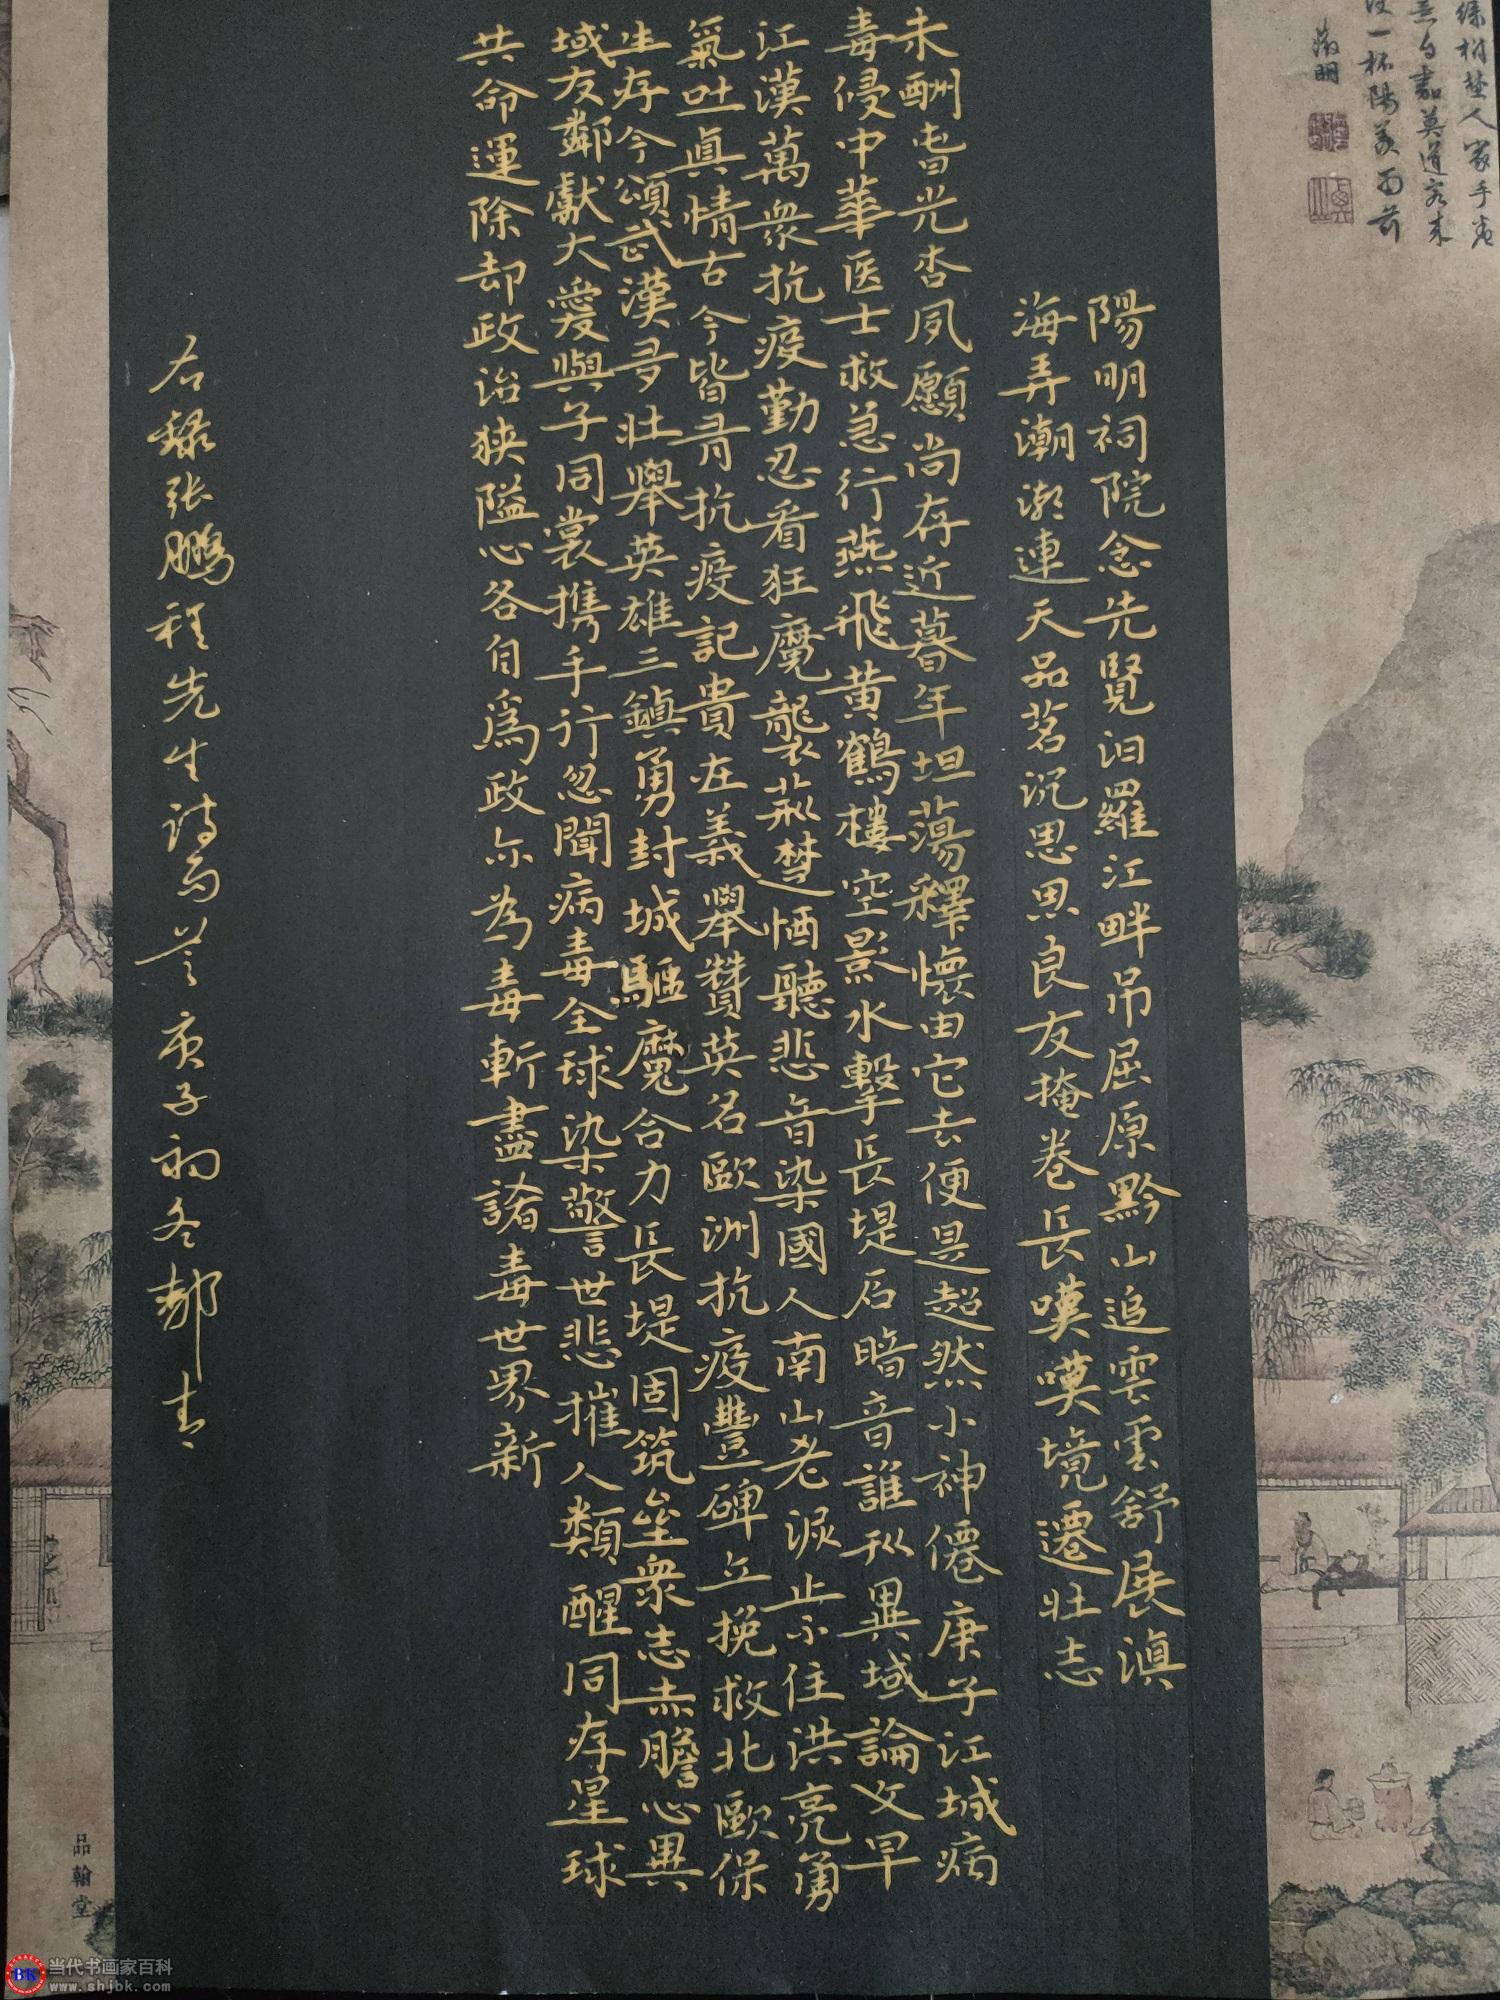 陽明祠院念先賢汨羅江畔吊屈原黔山追雲雲舒展滇
海弄潮潮連天品茗沉思思良友掩卷長嘆嘆境遷壯志
未酬時光杳夙願尚存近暮年坦蕩釋懷由它去便是超然小神僊庚子江城病
毒侵中華医士救急行燕飛黄鶴樓空影水擊長堤石暗音誰糾異域論文早
江漢萬衆抗疫勤忍看狂魔襲荊楚恓聽悲音染國人南山老淚止不住洪亮勇
氣吐真情古今皆有抗疫記貴在義舉贊英名歐洲抗疫豐碑立挽救北歐保
生存今頌武漢多壯舉英雄三鎮勇封城驅魔合力長堤固筑垒衆志赤膽心異
域友鄰獻大愛與子同裳携手行忽聞病毒全球染警世悲摧人類醒同存星球
共命運除却政治狭隘心各自爲政亦為毒斬盡諸毒世界新
右録張鵬程先生詩葛兰庚子初冬郝青
品翰堂
緑樹
人家手
莫道客来
一杯陽羨雨前
徵明
当代书画家百科
www.shjbk.com
BK